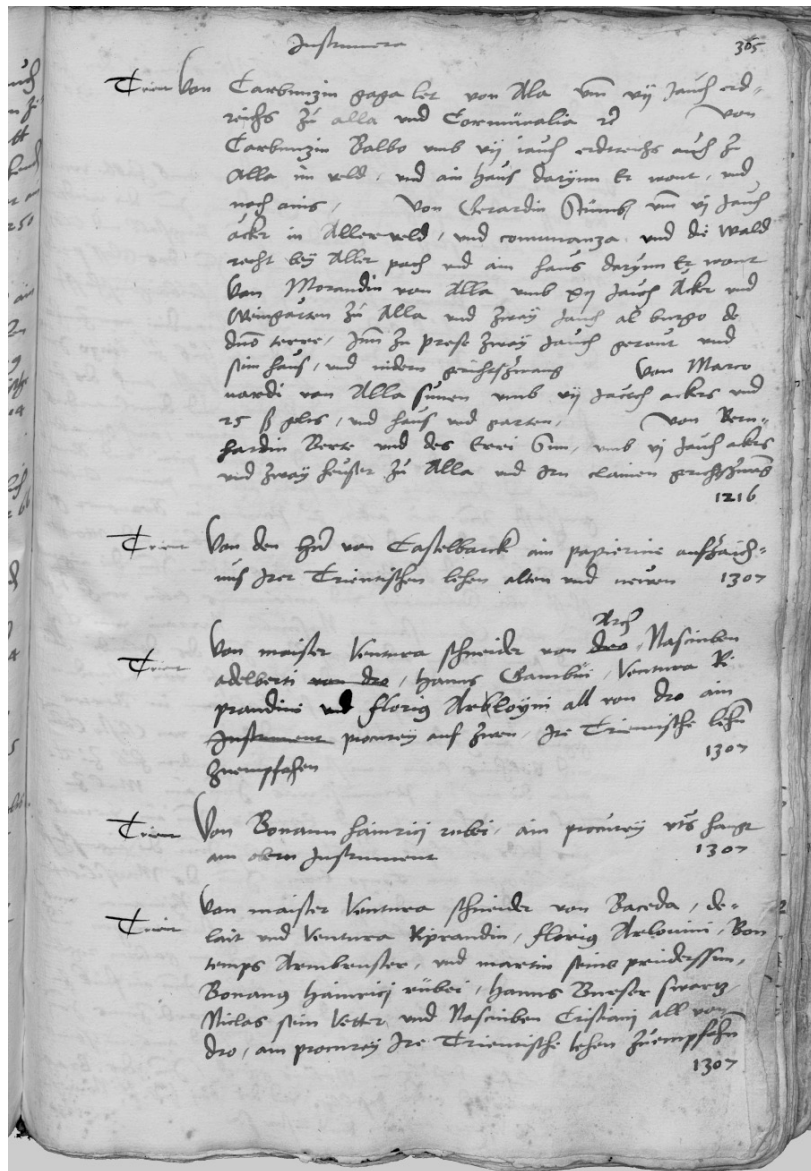 Instrumenta
305
Trient Von Carbonzin gaga let von Ala umb vij Jauch erd-
reichs zu alla und Cormüralia rc von
Carbonzin Balbo umb vij iauch erdtreichs auch zu
Alla im veld, und ain haus darynn Er wont, und
noch ains, Von Gerardin umb vj Jauch
äckr in Allerveld, und communanza und die wald
recht bey Aller pach und ain haus darynn Er wont
Von Morandin von Alla umb xij Jauch Äckr und
Weingarten zu Alla und zway Jauch al burgo de
terre, zu prese zway Jauch gereut und
sein haus, und nidern gerichtzwang Von Marco
nardi von Alla sunen umb vij Jauch ackers und
25 ß glts, und haus und garten, Von Bern-
hardin Berte und des Erei Sun, umb vj Jauch akrs
und zway heuser zu Alla und Irn clainen
1216
Trient Von den hrn von Castelbarck ain papierine aufzaich-
nus Irer Trientischen lehen alten und neuen 1307
Arch
Von maister Ventura schneider von dro, Nascinben
Trient adelberti von dro, Hanns Gambui, Ventura Ri
prandini und florig Arkloyni all von dro ain
Instrument procurey auf Iren, Ire Trientische lehn
zuempfahen 1307
Trient Von Bonaun hainricj rubei, ain procurey uts hangt
am obern Instrument 1307
Von maister Ventura schneider von Baceda, de-
Trient lait und Ventura Riprandin, florig Arlonini, Bon
temps Armbruster, und martin seins prudersun,
Bonaug hainricj rübei, Hanns Burser swartz,
Niclas sein Vetter und Nascinben Cristianj all von
dro, ain procurey Ire Trientische lehen zuempfahn
1307